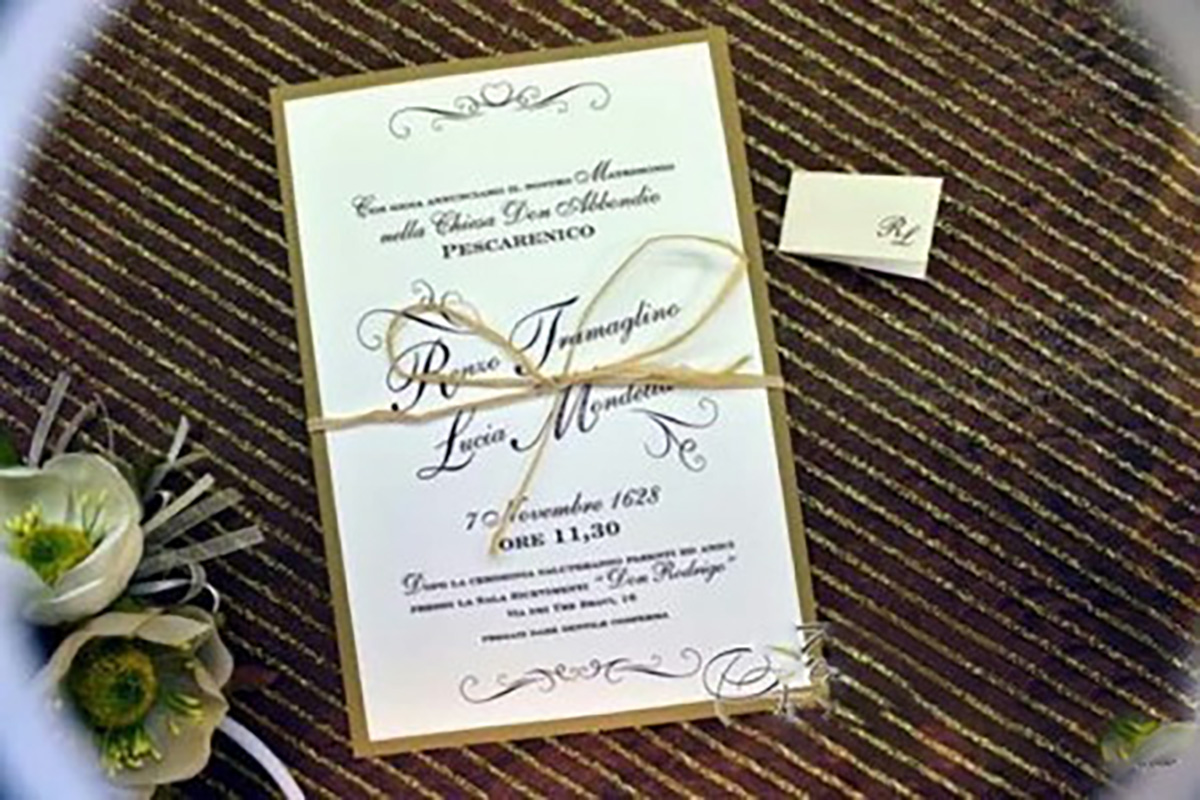 Con gioia annunciano il nostro Matrimonio
nella Chiesa Don Abbondio
Pescarenico
Renzo Tramaglino
Lucia Mondella
7 Novembre 1628
ore 11,30
Dopo la cerimonia saluteranno parenti ed amici
presso la Sala Ricevimenti "Don Rodrigo"
Via dei Tre Bravi, 16
pregasi dare gentile conferma
RL